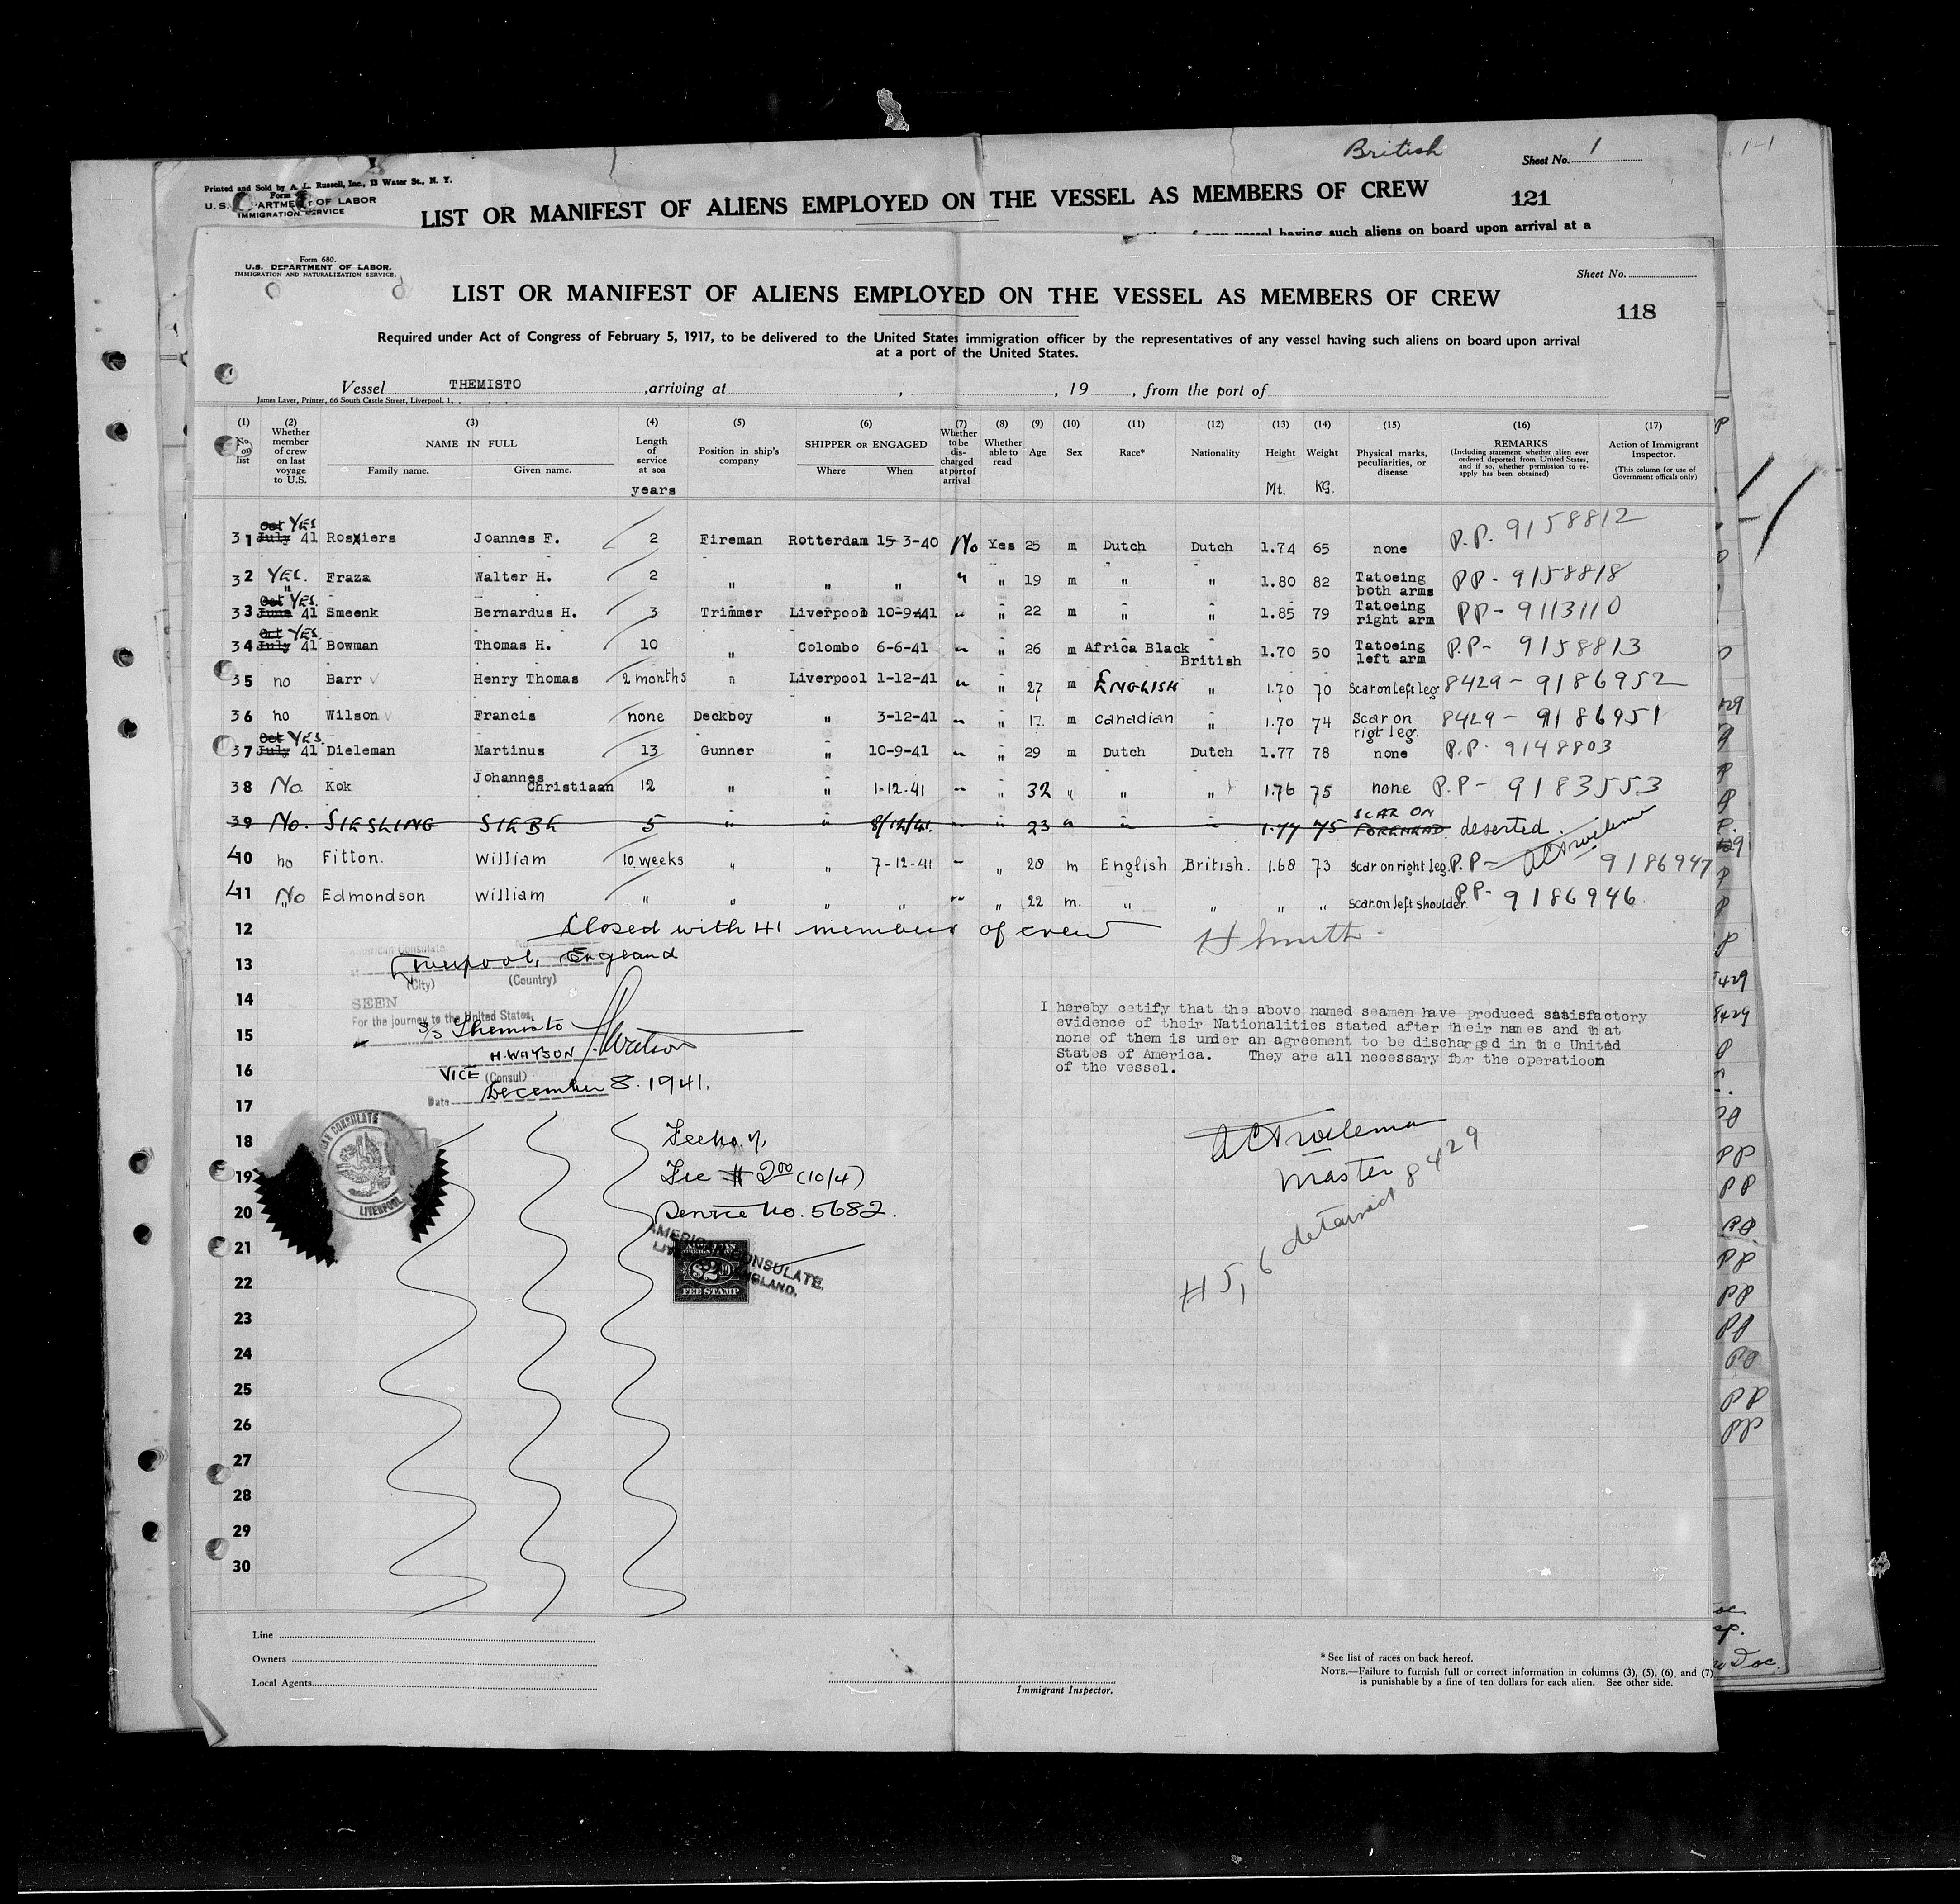 British
Sheet No. 1
Printed and Sold by A. L. Russell, Inc., 13 Water St., N. Y.
Form
U. S. DEPARTMENT OF LABOR
IMMIGRATION SERVICE
LIST OR MANIFEST OF ALIENS EMPLOYED ON THE VESSEL AS MEMBERS OF CREW
121
of any vessel having such aliens on board upon arrival at a
Form 680.
U.S. DEPARTMENT OF LABOR.
IMMIGRATION AND NATURALIZATION SERVICE.
Sheet No.
LIST OR MANIFEST OF ALIENS EMPLOYED ON THE VESSEL AS MEMBERS OF CREW
118
Required under Act of Congress of February 5, 1917, to be delivered to the United States immigration officer by the representatives of any vessel having such aliens on board upon arrival
at a port of the United States.
Vessel THEMISTO ,arriving at , , 19 , from the port of
James Laver, Printer, 66 South Castle Street, Liverpool. 1.
(1) No. on list (2) Whether member of crew on last voyage to U.S. (3) NAME IN FULL Family name. Given name. (4) Length of service at sea years (5) Position in ship's company (6) SHIPPED OR ENGAGED Where When (7) Whether to be discharged at port of arrival (8) Whether able to read (9) Age (10) Sex (11) Race* (12) Nationality (13) Height Mt. (14) Weight KG. (15) Physical marks, peculiarities, or disease (16) REMARKS (Including statement whether alien ever ordered deported from United States, and if so, whether permission to re-apply has been obtained) (17) Action of Immigrant Inspector. (This column for use of Government officals only)
31 Oct YES July 41 Rosxiers Joannes F. 2 Fireman Rotterdam 15-3-40 No Yes 25 m Dutch Dutch 1.74 65 none P.P. 9158812
32 YES. Fraza Walter H. 2 " " " " " 19 m " " 1.80 82 Tatoeing both arms PP - 9158818
33 Oct YES. June 41 Smeenk Bernardus H. 3 Trimmer Liverpool 10-9-41 " " 22 m " " 1.85 79 Tatoeing right arm PP - 9113110
34 Oct YES. July 41 Bowman Thomas H. 10 " Colombo 6-6-41 " " 26 m Africa Black British 1.70 50 Tatoeing left arm P.P - 9158813
35 no Barr Henry Thomas 2 months " Liverpool 1-12-41 " " 27 m ENGLISH " 1.70 70 Scar on left leg 8429 - 9186952
36 no Wilson Francis none Deckboy " 3-12-41 " " 17. m Canadian " 1.70 74 Scar on rigt leg. 8429 - 9186951
37 Oct YES. July 41 Dieleman Martinus 13 Gunner " 10-9-41 " " 29 m Dutch Dutch 1.77 78 none P.P. 9148803
38 No. Kok Johannes Christiaan 12 " " 1-12-41 " " 32 " " " 1.76 75 none P.P - 9183553
39 No. SIESLING SIEBE 5 " " 8/12/41. " " 23 " " " 1.77 75 SCAR ON FOREHEAD. deserted.
40 no Fitton. William 10 weeks " " 7-12-41 " " 20 m English British. 1.68 73 Scar on right leg. P.P - 9186947
41 No Edmondson William " " " " " " 22 m. " " " " Scar on left shoulder. PP- 9186946
12 Closed with 41 members of crew H Smith
American Consulate
13 Liverpool, England
(City) (Country)
14
SEEN
For the journey to the United States.
15 S/S Themisto H Watson
H. WATSON
16 VICE (Consul)
Date December 8. 1941.
I hereby cetify that the above named seamen have produced satisfactory
evidence of their Nationalities stated after their names and that
none of them is under an agreement to be discharged in the United
States of America. They are all necessary for the operatioon
of the vessel.
17
18
19
20
21
22
23
24
25
26
27
28
29
30
AMERICAN CONSULATE
LIVERPOOL
Fee $ 2.00 (10/4)
Service No. 5682.
AMERICAN CONSULATE.
LIVERPOOL, ENGLAND.
$2.00
FEE STAMP
Master
# 5, 6 detained 8429
Line
Owners
Local Agents
Immigrant Inspector.
*See list of races on back hereof.
NOTE.—Failure to furnish full or correct information in columns (3), (5), (6), and (7)
is punishable by a fine of ten dollars for each alien. See other side.